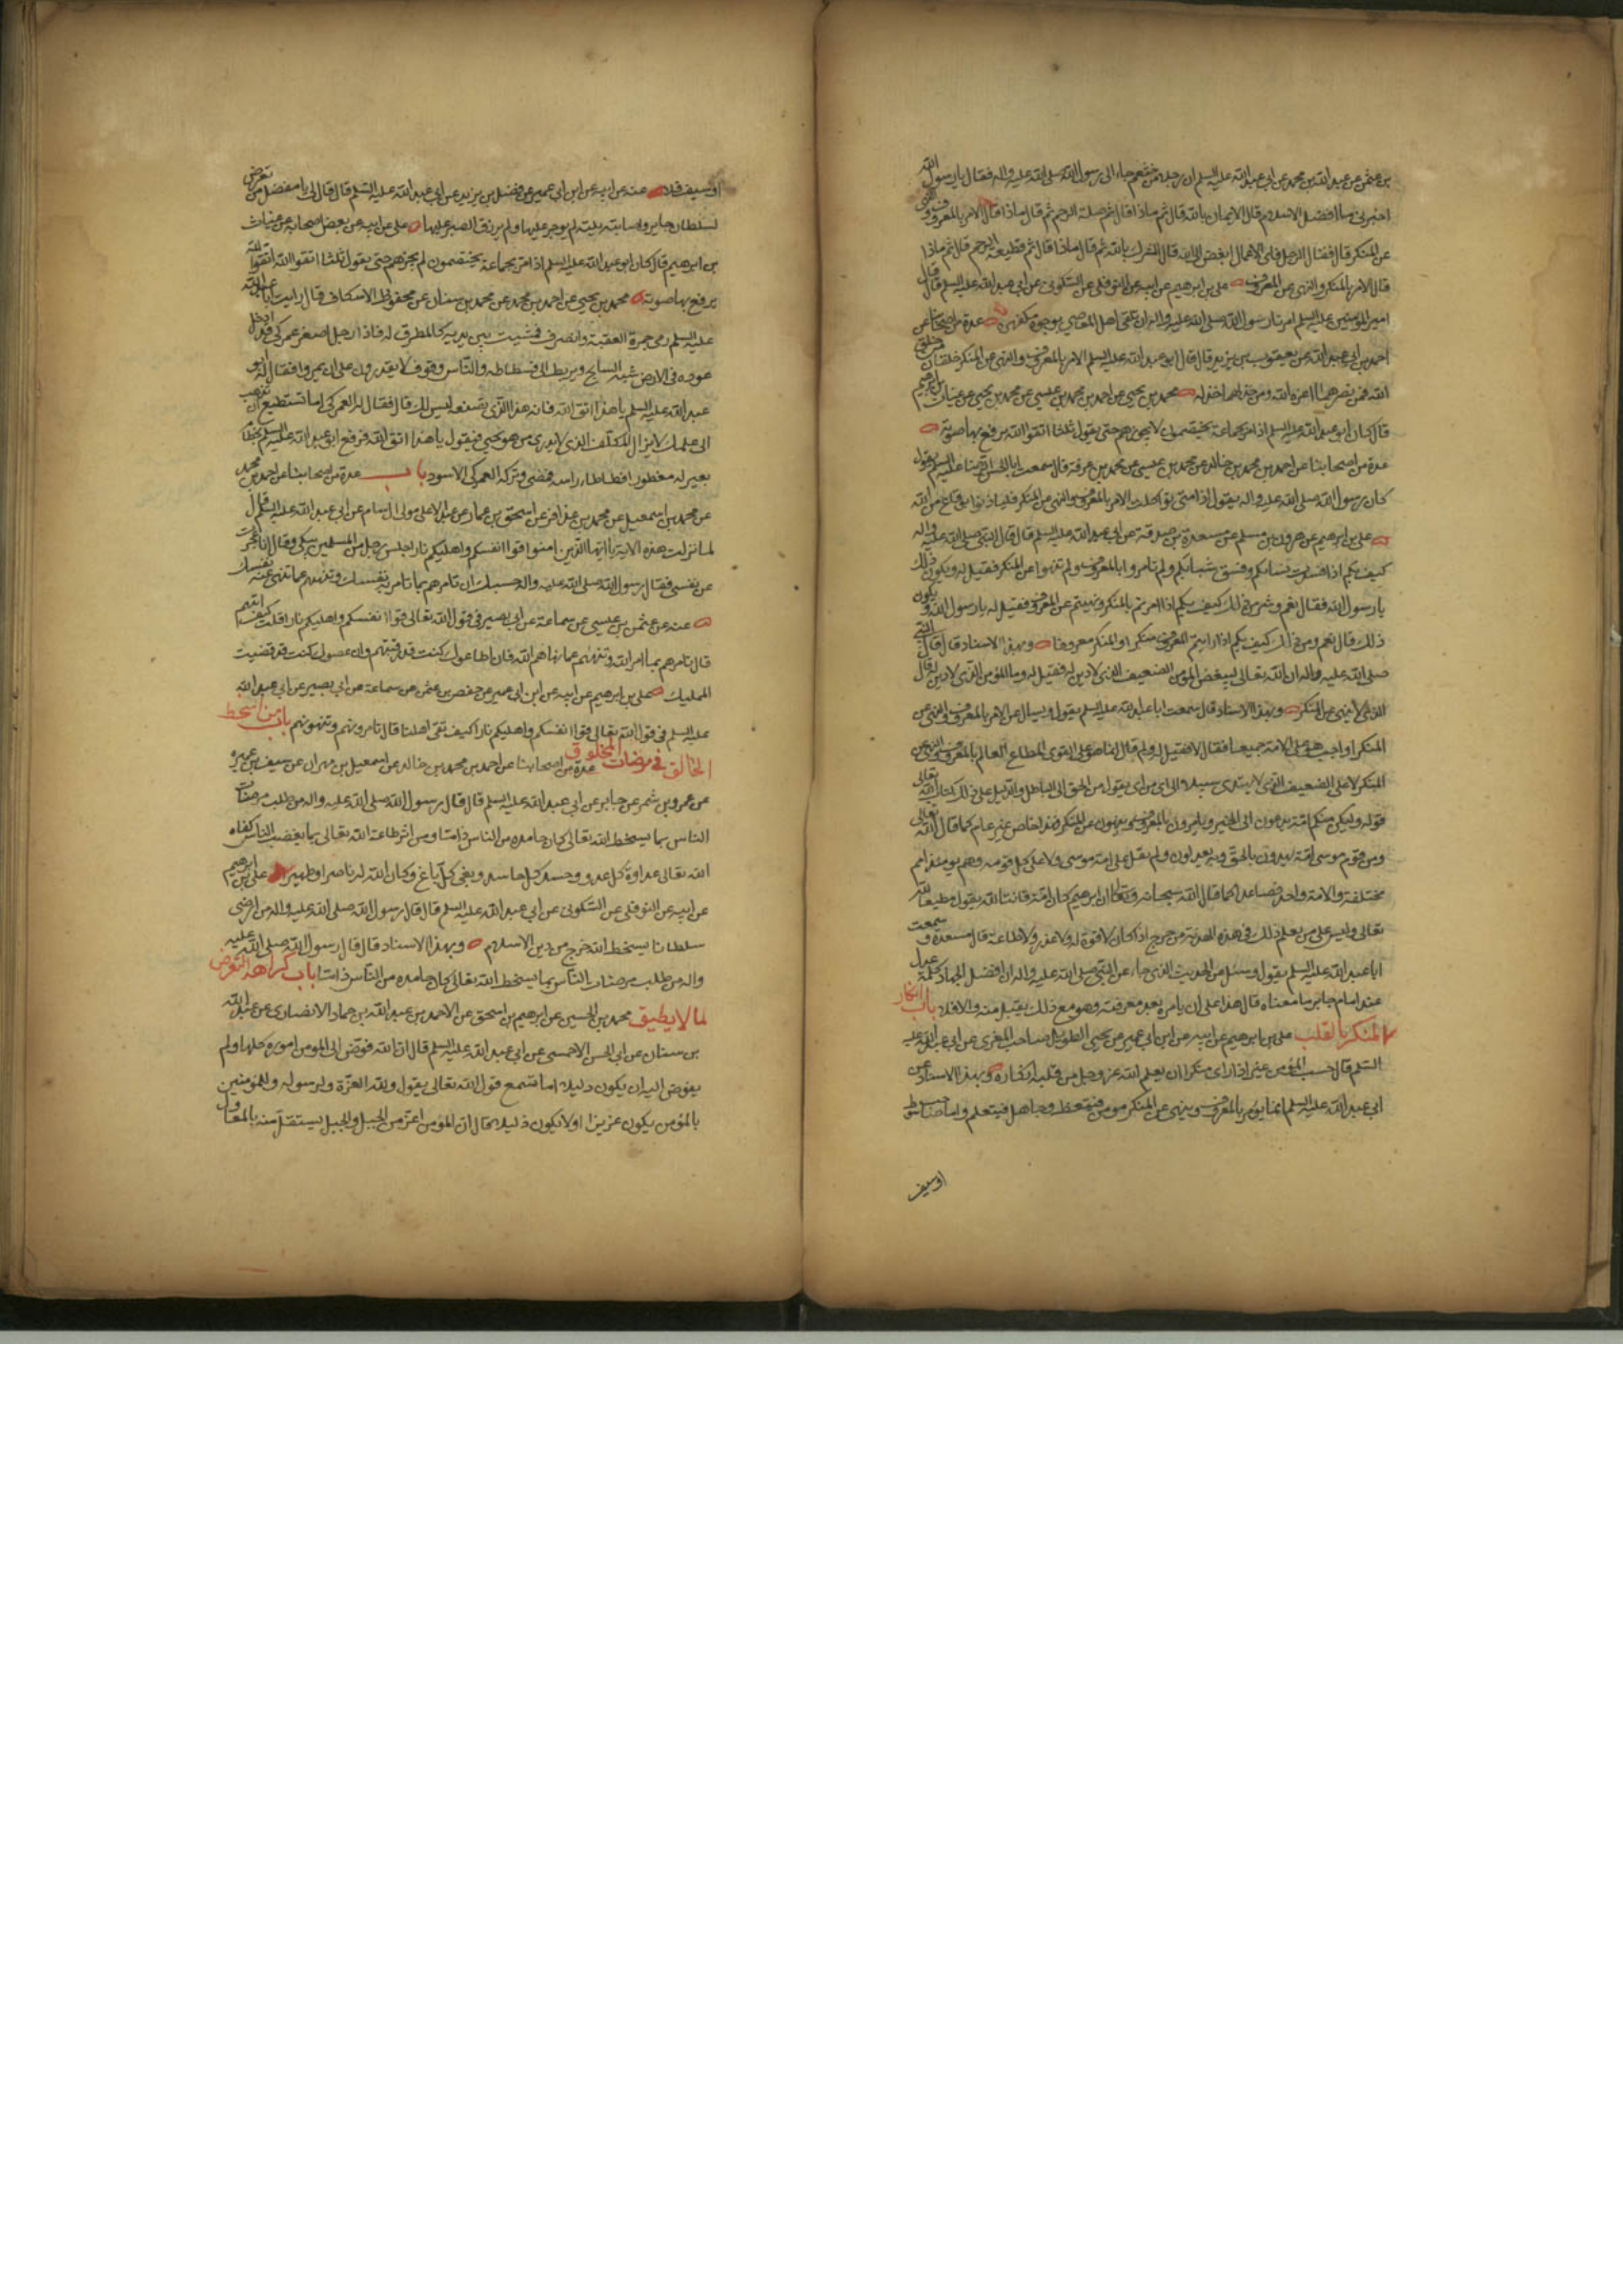 بن عثمن عن عبد الله بن محمد عن ابي عبد الله عليه السلم ان رجلا من خثعم جاء الى رسول الله صلى الله عليه واله فقال يا رسول الله
اخبرني ما افضل الاسلام قال الايمان بالله قال ثم ماذا قال ثم صلة الرحم ثم قال ماذا قال الامر بالمعروف والنهى
عن المنكر قال فقال الرجل فاي الاعمال ابغض الى الله قال الشرك بالله ثم قال ماذا قال ثم قطيعة الرحم قال ثم ماذا
قال الامر بالمنكر والنهى عن المعروف علي بن ابرهيم عن ابيه عن النوفلي عن السكوني عن ابي عبد الله عليه السلم قال قال
امير المومنين عليه السلم امرنا رسول الله صلى الله عليه واله ان نلقى اهل المعاصي بوجوه مكفهرة عدة من اصحابنا عن
احمد بن ابي عبد الله عن يعقوب بن يزيد قال قال ابو عبد الله عليه السلم الامر بالمعروف والنهى عن المنكر خلقان من خلق
الله فمن نصرهما اعزه الله ومن خذلهما خذله محمد بن يحيى عن احمد بن محمد بن عيسى عن محمد بن يحيى عن غياث بن ابرهيم
قال كان ابو عبد الله عليه السلم اذا مر بجماعة يختصمون لا يجوزهم حتى يقول ثلثا اتقوا الله يرفع بها صوته
عدة من اصحابنا عن احمد بن محمد بن خالد عن محمد بن عيسى عن محمد بن عرفة قال سمعت ابا الحسن الرضا عليه السلم يقول
كان رسول الله صلى الله عليه واله يقول اذا امتي تواكلت الامر بالمعروف والنهى عن المنكر فلياذنوا بوقاع من الله
علي بن ابرهيم عن هرون بن مسلم عن مسعدة بن صدقة عن ابي عبد الله عليه السلم قال قال النبي صلى الله عليه واله
كيف بكم اذا فسدت نساءكم وفسق شبابكم ولم تامروا بالمعروف ولم تنهوا عن المنكر فقيل له ويكون ذلك
يا رسول الله فقال نعم وشر من ذلك كيف بكم اذا امرتم بالمنكر ونهيتم عن المعروف فقيل له يا رسول الله ويكون
ذلك قال نعم وشر من ذلك كيف بكم اذا رايتم المعروف منكرا والمنكر معروفا وبهذا الاسناد قال قال النبي
صلى الله عليه واله ان الله تعالى ليبغض المؤمن الضعيف الذي لا دين له فقيل له وما المؤمن الذي لا دين له قال
الذي لا ينهى عن المنكر وبهذا الاسناد قال سمعت ابا عبد الله عليه السلم يقول وسئل عن الامر بالمعروف والنهى عن
المنكر اواجب هو على الامة جميعا فقال لا فقيل له ولم قال انما هو على القوى المطاع العالم بالمعروف من
المنكر لا على الضعيف الذي لا يهتدى سبيلا الى اي من اي يقول من الحق الى الباطل والدليل على ذلك كتاب الله تعالى
قوله ولتكن منكم امة يدعون الى الخير ويامرون بالمعروف وينهون عن المنكر فهذا خاص غير عام كما قال الله تعالى
ومن قوم موسى امة يهدون بالحق وبه يعدلون ولم يقل على امة موسى ولا على كل قومه وهم يومئذ امم
مختلفة والامة واحد فصاعدا كما قال الله سبحانه وتعالى ان ابرهيم كان امة قانتا لله يقول مطيعا لله
تعالى وليس على من يعلم ذلك في هذه الهدنة من حرج اذا كان لا قوة له ولا عذر ولا طاعة قال مسعدة وسمعت
ابا عبد الله عليه السلم يقول وسئل عن الحديث الذي جاء عن النبي صلى الله عليه واله ان افضل الجهاد كلمة عدل
عند امام جاير ما معناه قال هذا على ان يامره بعد معرفته وهو مع ذلك يقبل منه والا فلا باب انكار
المنكر بالقلب علي بن ابرهيم عن ابيه عن ابن ابي عمير عن يحيى الطويل صاحب المقرى عن ابي عبد الله عليه
السلم قال حسب المؤمن غيرا اذا راى منكرا ان يعلم الله عز وجل من قلبه انكاره وبهذا الاسناد عن
ابي عبد الله عليه السلم انما يؤمر بالمعروف وينهى عن المنكر مومن فيتعظ وجاهل فيتعلم واما صاحب سوط
اوسيف
اوسيف فلا عنه عن ابيه عن ابن ابي عمير عن مفضل بن يزيد عن ابي عبد الله عليه السلم قال قال لي يا مفضل من تعرض
لسلطان جاير فاصابته بلية لم يوجر عليها ولم يرزق الصبر عليها علي عن ابيه عن بعض اصحابه عن غياث
بن ابرهيم قال كان ابو عبد الله عليه السلم اذا مر بجماعة يختصمون لم يجزهم حتى يقول ثلثا اتقوا الله اتقوا الله
يرفع بها صوته محمد بن يحيى عن احمد بن محمد عن محمد بن سنان عن محفوظ الاسكاف قال رايت ابا عبد الله
عليه السلم رمى جمرة العقبة وانصرف فمشيت بين يديه كالمطرق له فاذا رجل اصفر عمركي قد ادخل
عودة في الارض شبه السابح وربطه الى فسطاطه والناس وقوف لا يقدرون على ان يمروا فقال له ابو
عبد الله عليه السلم يا هذا اتق الله فان هذا الذي تصنعه ليس لك قال فقال له العمركي اما تستطيع ان تذهب
الى عملك لا يزال المكلف الذي لا يدرى من هو يجي فيقول يا هذا اتق الله فرفع ابو عبد الله عليه السلم بخطام
بعير له مقطورا فطاطا راسه فمضى وتركه العمركي الاسود باب عدة من اصحابنا عن احمد بن محمد
عن محمد بن اسمعيل عن محمد بن عذافر عن اسحق بن عمار عن عبد الاعلى مولى ال سام عن ابي عبد الله عليه السلم قال
لما نزلت هذه الاية يا ايها الذين امنوا قوا انفسكم واهليكم نارا جلس رجل من المسلمين يبكى وقال انا عجزت
عن نفسي فقال رسول الله صلى الله عليه واله حسبك ان تامرهم بما تامر به نفسك وتنهاهم عما تنهى عنه نفسك
عنه عن عثمن بن عيسى عن سماعة عن ابي بصير في قول الله تعالى قوا انفسكم واهليكم نارا قلت كيف اقيهم
قال تامرهم بما امر الله وتنهاهم عما نهاهم الله فان اطاعوك كنت قد وقيتهم وان عصوك كنت قد قضيت
ما عليك علي بن ابرهيم عن ابيه عن ابن ابي عمير عن حفص بن عثمن عن سماعة عن ابي بصير عن ابي عبد الله
عليه السلم في قول الله تعالى قوا انفسكم واهليكم نارا كيف نقى اهلنا قال تامرونهم وتنهونهم باب من اسخط
الخالق في مرضات المخلوق عدة من اصحابنا عن احمد بن محمد بن خالد عن اسمعيل بن مهران عن سيف بن عميره
عن عمرو بن شمر عن جابر عن ابي عبد الله عليه السلم قال قال رسول الله صلى الله عليه واله من طلب مرضات
الناس بما يسخط الله تعالى كان حامده من الناس ذاما ومن اثر طاعة الله تعالى بما يغضب الناس كفاه
الله تعالى عداوة كل عدو وحسد كل حاسد وبغى كل باغ وكان الله له ناصرا وظهيرا علي بن ابرهيم
عن ابيه عن النوفلي عن السكوني عن ابي عبد الله عليه السلم قال قال رسول الله صلى الله عليه واله من ارضى
سلطانا بسخط الله خرج من دين الاسلام وبهذا الاسناد قال قال رسول الله صلى الله عليه
واله من طلب مرضات الناس بما يسخط الله تعالى كان حامده من الناس ذاما باب كراهة التعرض
لما لا يطيق محمد بن الحسين عن ابرهيم بن اسحق عن الاحمد بن عبد الله بن حماد الانصارى عن عبد الله
بن سنان عن ابي الحسن الاحمسي عن ابي عبد الله عليه السلم قال ان الله فوض الى المومن اموره كلها ولم
يفوض اليه ان يكون ذليلا اما تسمع قول الله تعالى يقول ولله العزة ولرسوله وللمؤمنين
بالمؤمن يكون عزيزا اولا يكون ذليلا قال ان المؤمن اعز من الجبل والجبل يستقل منه بالمعاول